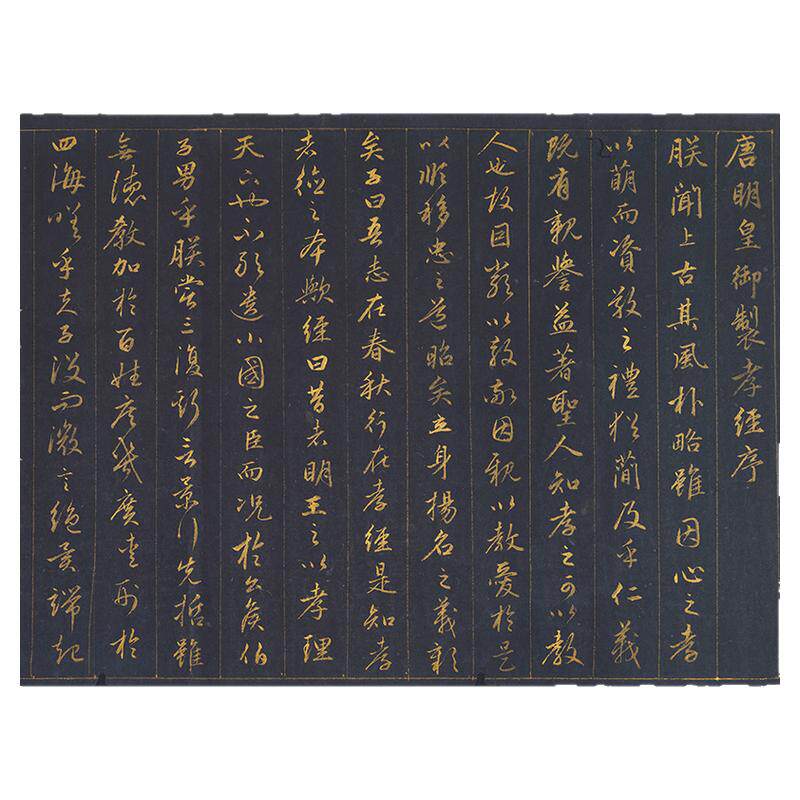 唐明皇御製孝經序
朕聞上古其風朴略雖因心之孝
以萌而資敬之禮猶簡及乎仁義
既有親譽益著聖人知孝之可以教
人也故因嚴以教敬因親以教愛於是
以順移忠之道昭矣立身揚名之義彰
矣子曰吾志在春秋行在孝經是知孝
者德之本歟經曰昔者明王之以孝理
天下也不敢遺小國之臣而況於公侯伯
子男乎朕嘗三復斯言景行先哲雖
無德教加於百姓庶幾廣愛刑於
四海嗟乎夫子沒而微言絕異端起